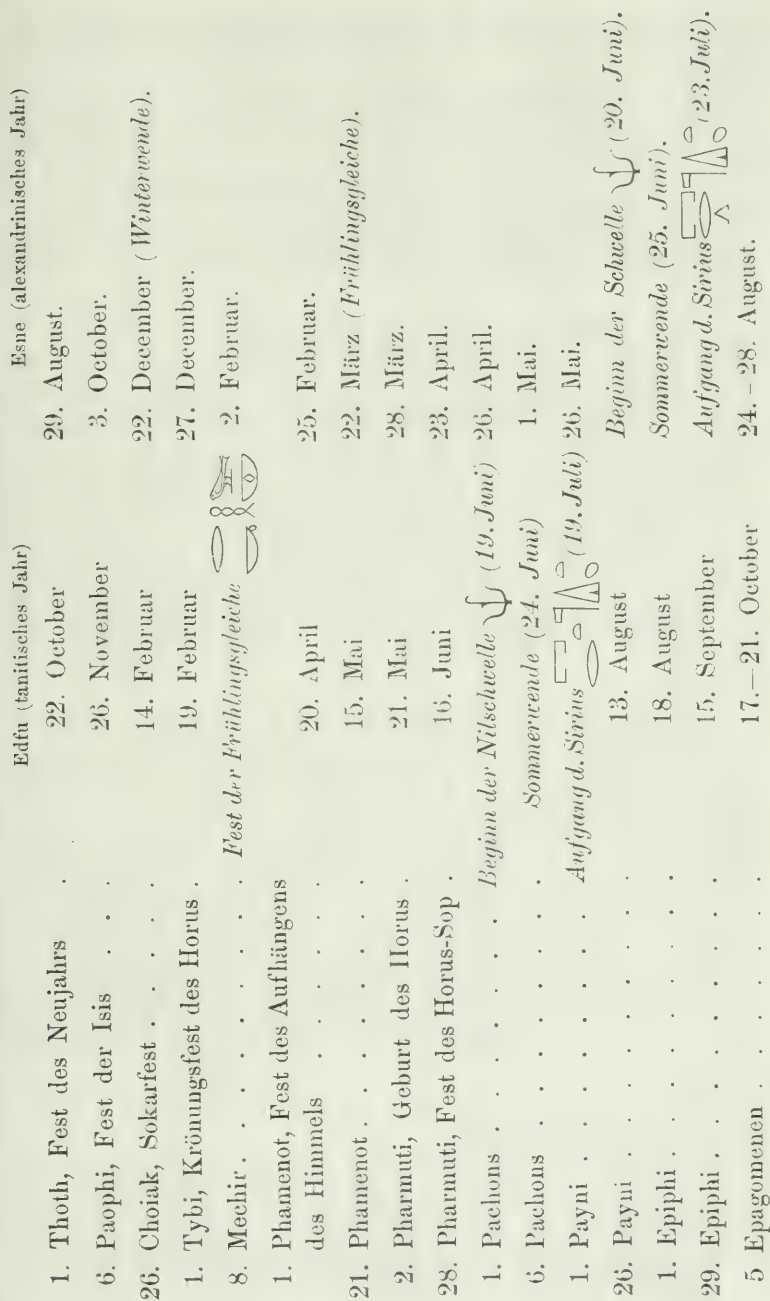 Edfu (tanitisches Jahr) Esne (alexandrinisches Jahr)
1. Thoth, Fest des Neujahrs . 22. October 29. August.
6. Paophi, Fest der Isis . . . 26. November 3. October.
26. Choiak, Sokarfest . . . . . 14. Februar 22. December (Winterwende).
1. Tybi, Krönungsfest des Horus . 19. Februar 27. December.
8. Mechir . . . . . . . Fest der Frühlingsgleiche 2. Februar.
1. Phamenot, Fest des Aufhängens
des Himmels . . . . . . 20. April 25. Februar.
21. Phamenot . . . . . . . 15. Mai 22. März (Frühlingsgleiche).
2. Pharmuti, Geburt des Horus . 21. Mai 28. März.
28. Pharmuti, Fest des Horus-Sop . 16. Juni 23. April.
1. Pachons . . . . . . . Beginn der Nilschwelle (19. Juni) 26. April.
6. Pachons . . . . . . . Sommerwende (24. Juni) 1. Mai.
1. Payni . . . . . . . Aufgang d. Sirius (19. Juli) 26. Mai.
26. Payni . . . . . . . 13. August Beginn der Schwelle (20. Juni).
1. Epiphi . . . . . . . 18. August Sommerwende (25. Juni).
29. Epiphi . . . . . . . 15. September Aufgang d. Sirius (23. Juli).
5 Epagomenen . . . . . 17.—21. October 24.–28. August.